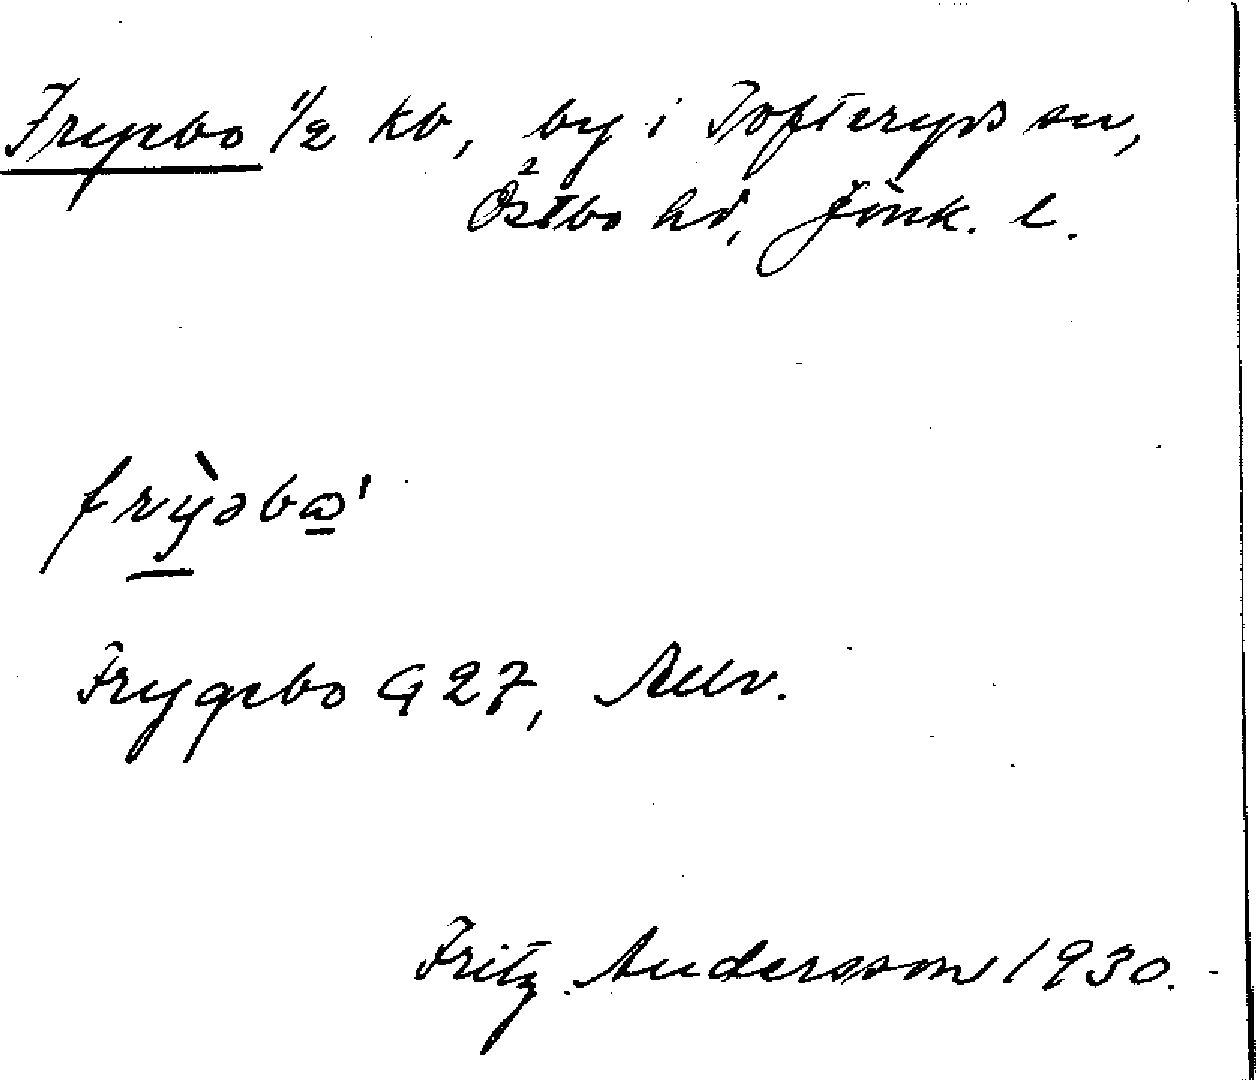 Fryebo 1/2 kb, by i Tofteryds sn,
Östbo hd, Jönk. l.
frỳəbω'
Frygebo G 27,
Fritz Andersson 1930.